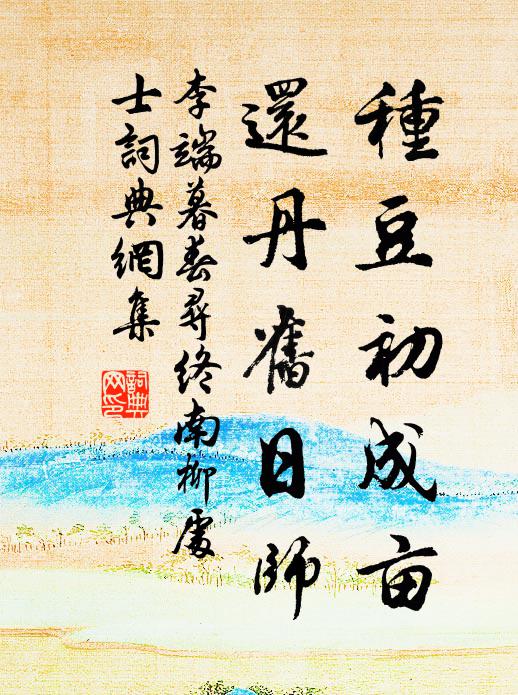 種豆初成亩
還丹舊日師
李端暮春尋終南柳處
士詞典網集
詞典
网印